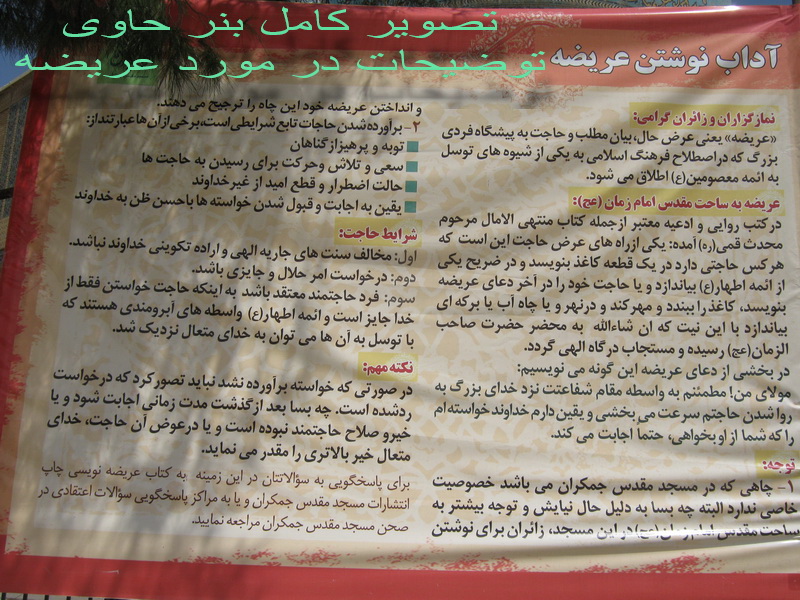 تصویر کامل بنر حاوی
توضیحات در مورد عریضه
آداب نوشتن عریضه
نمازگزاران و زائران گرامی:
«عریضه» یعنی عرض حال، بیان مطلب و حاجت به پیشگاه فردی
بزرگ که در اصطلاح فرهنگ اسلامی به یکی از شیوه های توسل
به ائمه معصومین(ع) اطلاق می شود.
عریضه به ساحت مقدس امام زمان (عج):
در کتب روایی و ادعیه معتبر ازجمله کتاب منتهی الامال مرحوم
محدث قمی(ره) آمده: یکی ازراه های عرض حاجت این است که
هرکس حاجتی دارد در یک قطعه کاغذ بنویسد و در ضریح یکی
از ائمه اطهار(ع) بیاندازد و یا حاجت خود را در آخر دعای عریضه
بنویسد، کاغذ را ببندد و مهر کند و درنهر و یا چاه آب یا برکه ای
بیاندازد با این نیت که ان شاءالله به محضر حضرت صاحب
الزمان(عج) رسیده و مستجاب درگاه الهی گردد.
در بخشی از دعای عریضه این گونه می نویسیم:
مولای من! مطمئنم به واسطه مقام شفاعتت نزد خدای بزرگ به
روا شدن حاجتم سرعت می بخشی و یقین دارم خداوند خواسته ام
را که شما از او بخواهی، حتماً اجابت می کند.
توجه:
۱- چاهی که در مسجد مقدس جمکران می باشد خصوصیت
خاصی ندارد البته چه بسا به دلیل حال نیایش و توجه بیشتر به
ساحت مقدس امام زمان(عج) در این مسجد، زائران برای نوشتن
و انداختن عریضه خود این چاه را ترجیح می دهند.
۲- برآورده شدن حاجات تابع شرایطی است، برخی از آن ها عبارتنداز:
توبه و پرهیز از گناهان
سعی و تلاش وحرکت برای رسیدن به حاجت ها
حالت اضطرار و قطع امید از غیر خداوند
یقین به اجابت و قبول شدن خواسته ها باحسن ظن به خداوند
شرایط حاجت:
اول: مخالف سنت های جاریه الهی و اراده تکوینی خداوند نباشد.
دوم: درخواست امر حلال و جایزی باشد.
سوم: فرد حاجتمند معتقد باشد به اینکه حاجت خواستن فقط از
خدا جایز است و ائمه اطهار(ع) واسطه های آبرومندی هستند که
با توسل به آن ها می توان به خدای متعال نزدیک شد.
نکته مهم:
در صورتی که خواسته برآورده نشد نباید تصور کرد که درخواست
رد شده است. چه بسا بعد از گذشت مدت زمانی اجابت شود و یا
خیرو صلاح حاجتمند نبوده است و یا درعوض آن حاجت، خدای
متعال خیر بالاتری را مقدر می نماید.
برای پاسخگویی به سؤالاتتان در این زمینه به کتاب عریضه نویسی چاپ
انتشارات مسجد مقدس جمکران و یا به مراکز پاسخگویی سؤالات اعتقادی در
صحن مسجد مقدس جمکران مراجعه نمایید.